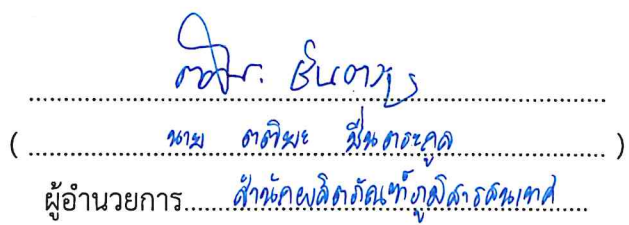 ( นาย ตติยะ ชื่นตระกูล )
ผู้อำนวยการ สำนักผลิตภัณฑ์ภูมิสารสนเทศ